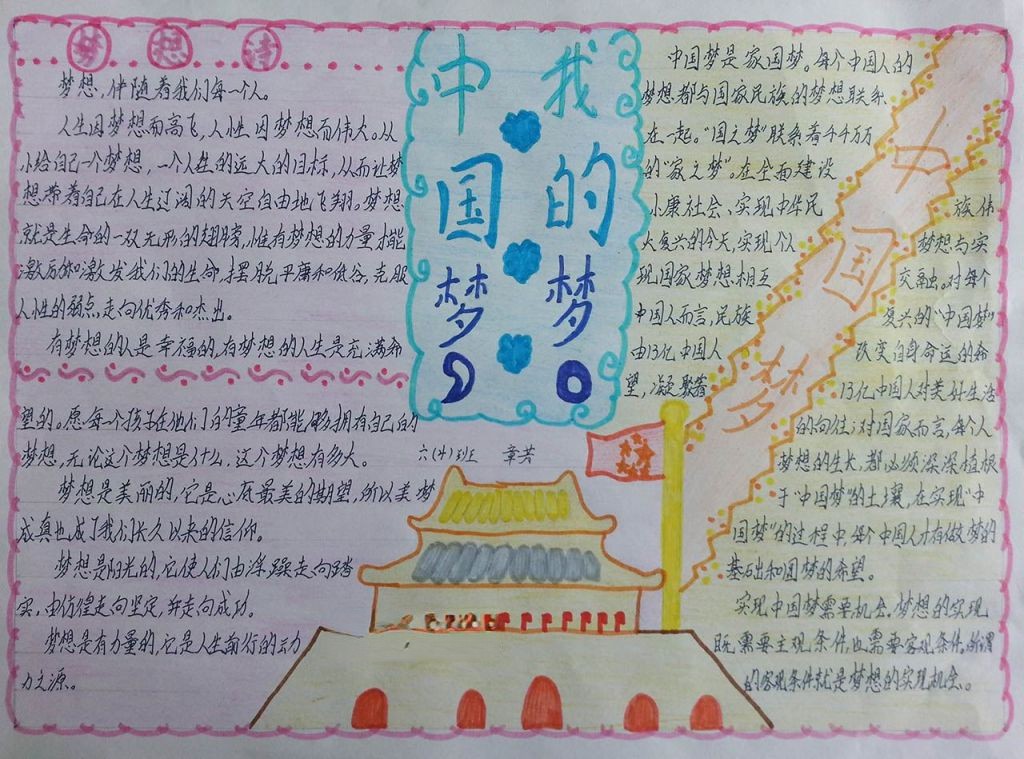 梦想诗
梦想,伴随着我们每一个人。
人生因梦想而高飞,人性因梦想而伟大。从
小给自己一个梦想,一个人生的远大的目标,从而让梦
想带着自己在人生辽阔的天空自由地飞翔。梦想
就是生命的一双无形的翅膀,惟有梦想的力量才能
激发我们的生命,摆脱平庸和低谷,克服
人性的弱点,走向优秀和杰出。
有梦想的人是幸福的,有梦想的人生是充满希
望的。愿每一个孩子在他们的童年都能够拥有自己的
梦想,无论这个梦想是什么,这个梦想有多大。
梦想是美丽的,它是心底最美的期望,所以美梦
成真也成了我们长久以来的信仰。
梦想是阳光的,它使人们由浮躁走向踏
实,由彷徨走向坚定,并走向成功。
梦想是有力量的,它是人生前行的动力
力之源。
我的梦
中国梦
六(4)班 章芸
中国梦是家国梦。每个中国人的
梦想都与国家民族的梦想联系
在一起。"国之梦"联系着千千万万
的"家之梦"。在全面建设
小康社会、实现中华民族伟
大复兴的今天,实现个人梦想与实
现国家梦想相互交融。对每个
中国人而言,民族复兴的"中国梦"
由13亿中国人改变自身命运的希
望,凝聚着13亿中国人对美好生活
的向往;对国家而言,每个人
梦想的生长,都必须深深植根
于"中国梦"的土壤,在实现"中
国梦"的过程中,每个中国人才有做梦的
基石出和圆梦的希望。
实现中国梦需要机会。梦想的实现
既需要主观条件,也需要客观条件,所谓
的客观条件就是梦想的实现机会。
中国梦